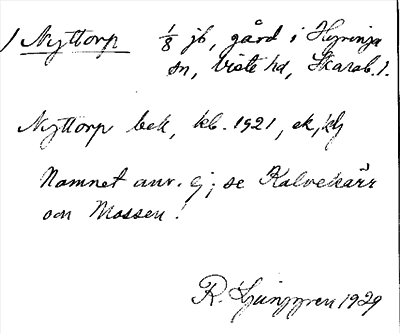 1 Nyttorp 1/8 jb, gård i Hyringa
sn, Viste hd, Skarab. l.
Nyttorp bek, kb. 1921, ek, kbg
Namnet anv. ej; se Kalvekärr
och Mossen!
R. Ljunggren 1929